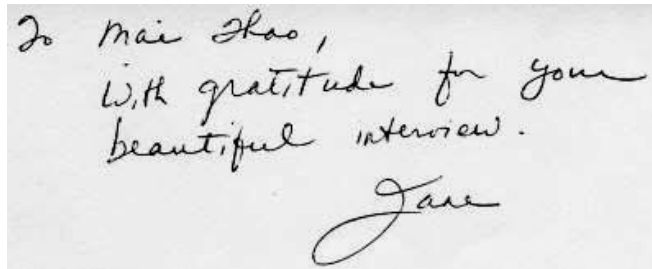 To Mai Thao,
With gratitude for your
beautiful interview.
Jane